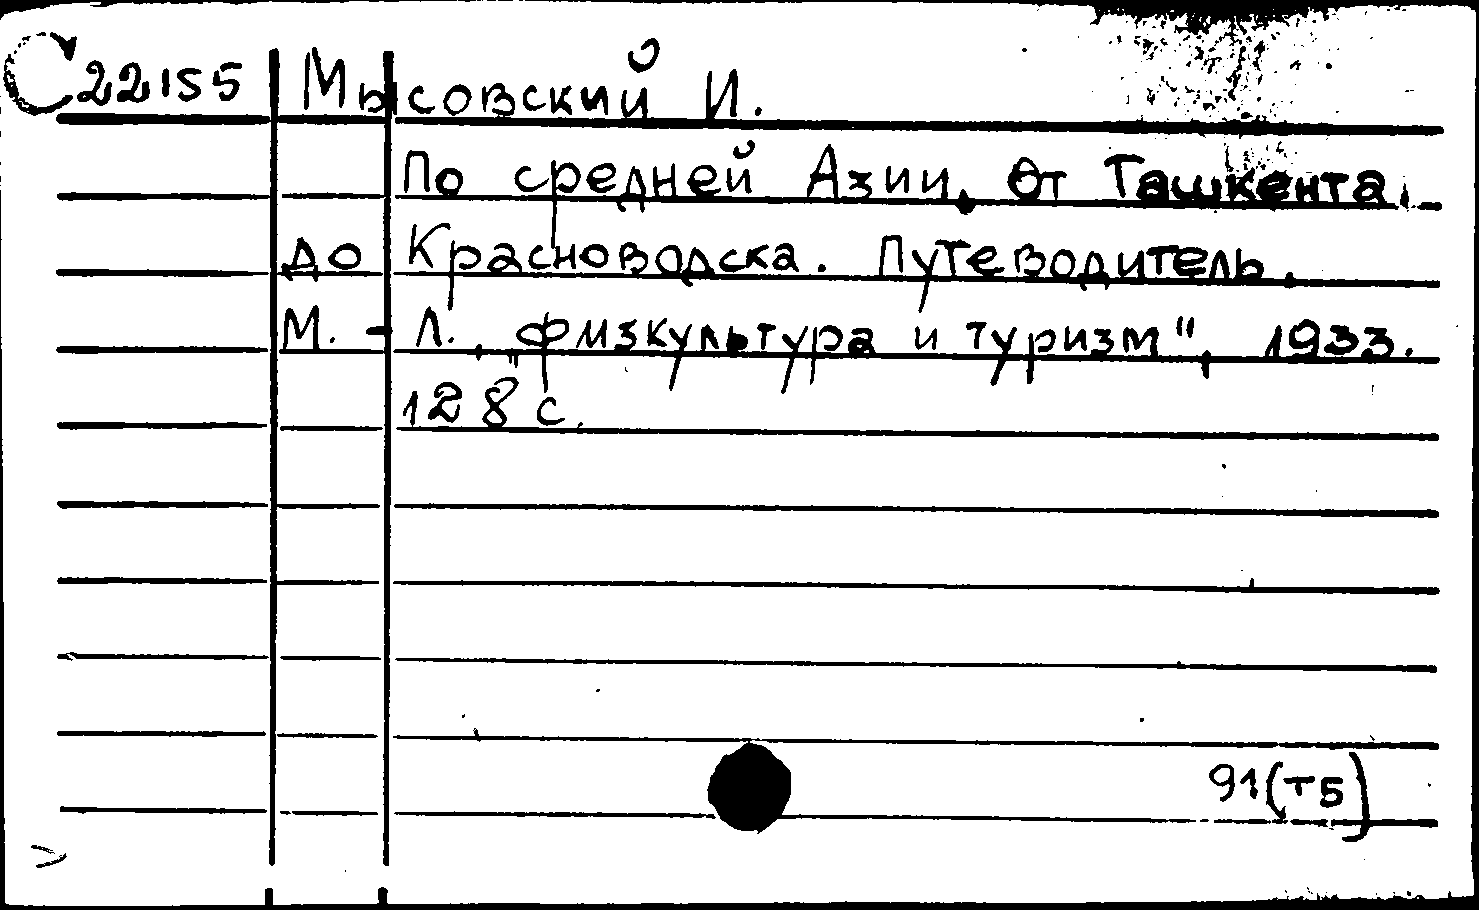 С22155 Мысовский И.
По средней Азии. От Ташкента
до Красноводска. Путеводитель.
М. - Л., „физкультура и туризм", 1933.
128 с.
91(Т5)